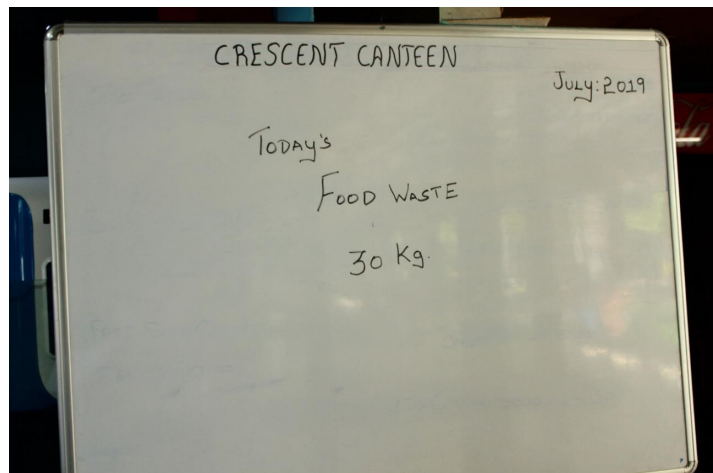 CRESCENT CANTEEN
July: 2019
TODAy's
FOOD WASTE
30 Kg.